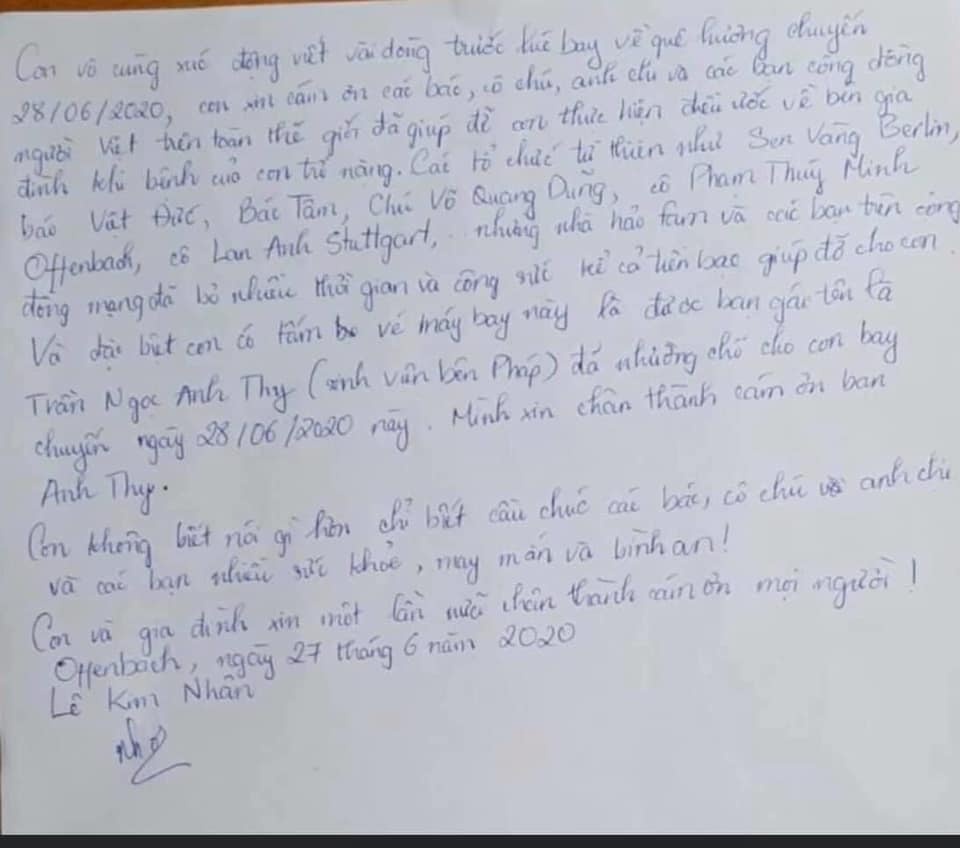 Con vô cùng xúc động viết vài dòng trước lúc bay về quê hương chuyến
28/06/2020, con xin cám ơn các bác, cô chú, anh chị và các bạn cộng đồng
người Việt trên toàn thế giới đã giúp đỡ con thực hiện điều ước về bên gia
đình khi bệnh của con trở nặng. Các tổ chức từ thiện như Sen Vàng Berlin,
báo Việt Đức, Bác Tâm, Chú Võ Quang Dũng, cô Phạm Thúy Minh
Offenbach, cô Lan Anh Stuttgart, những nhà hảo tâm và các bạn trên cộng
đồng mạng đã bỏ nhiều thời gian và công sức kể cả tiền bạc giúp đỡ cho con.
Và đặc biệt con có tấm vé máy bay này là được bạn gái tên là
Trần Ngọc Anh Thy (sinh viên bên Pháp) đã nhường chỗ cho con bay
chuyến ngày 28/06/2020 này. Mình xin chân thành cám ơn bạn
Anh Thy.
Con không biết nói gì hơn chỉ biết cầu chúc các bác, cô chú và anh chị
và các bạn nhiều sức khỏe, may mắn và bình an!
Con và gia đình xin một lần nữa chân thành cám ơn mọi người!
Offenbach, ngày 27 tháng 6 năm 2020
Lê Kim Nhân